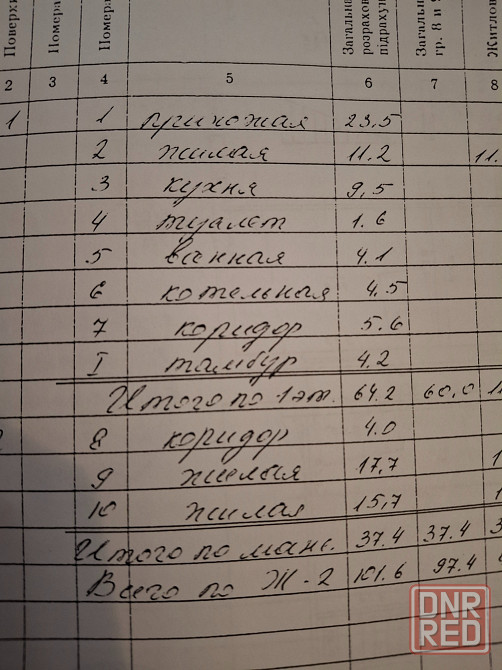 Поверхи
Номера
Номера
Загальна
розрахов
підрахун
Загальн
гр. 8 и 9
Житлов
2 3 4 5 6 7 8
1 1 прихожая 23,5
2 жилая 11.2 11.
3 кухня 9,5
4 туалет 1.6
5 ванная 4.1
6 котельная 4.5
7 коридор 5.6
I тамбур 4.2
Итого по 1 эт. 64.2 60,0 11
8 коридор 4.0
9 жилая 17,7 1
10 жилая 15,7 1
Итого по манс. 37.4 37.4 3
Всего по Ж-2 101.6 97.4
DNR
RED